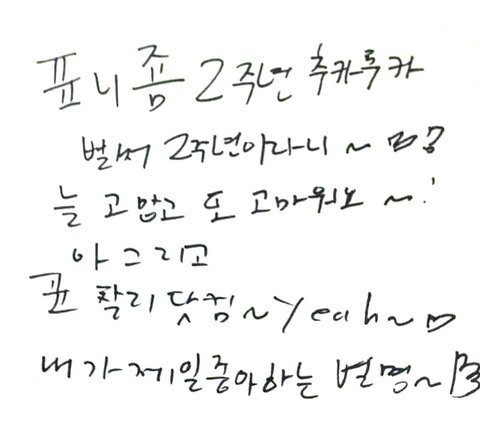 퓨니즘 2주년 추카루카
벌써 2주년이라니~ㅁㅎ
늘 고맙고 또 고마워요~!
아 그리고
퓬 찰리닷컴~Yeah~ㅁ
내가 제일 좋아하는 별명~